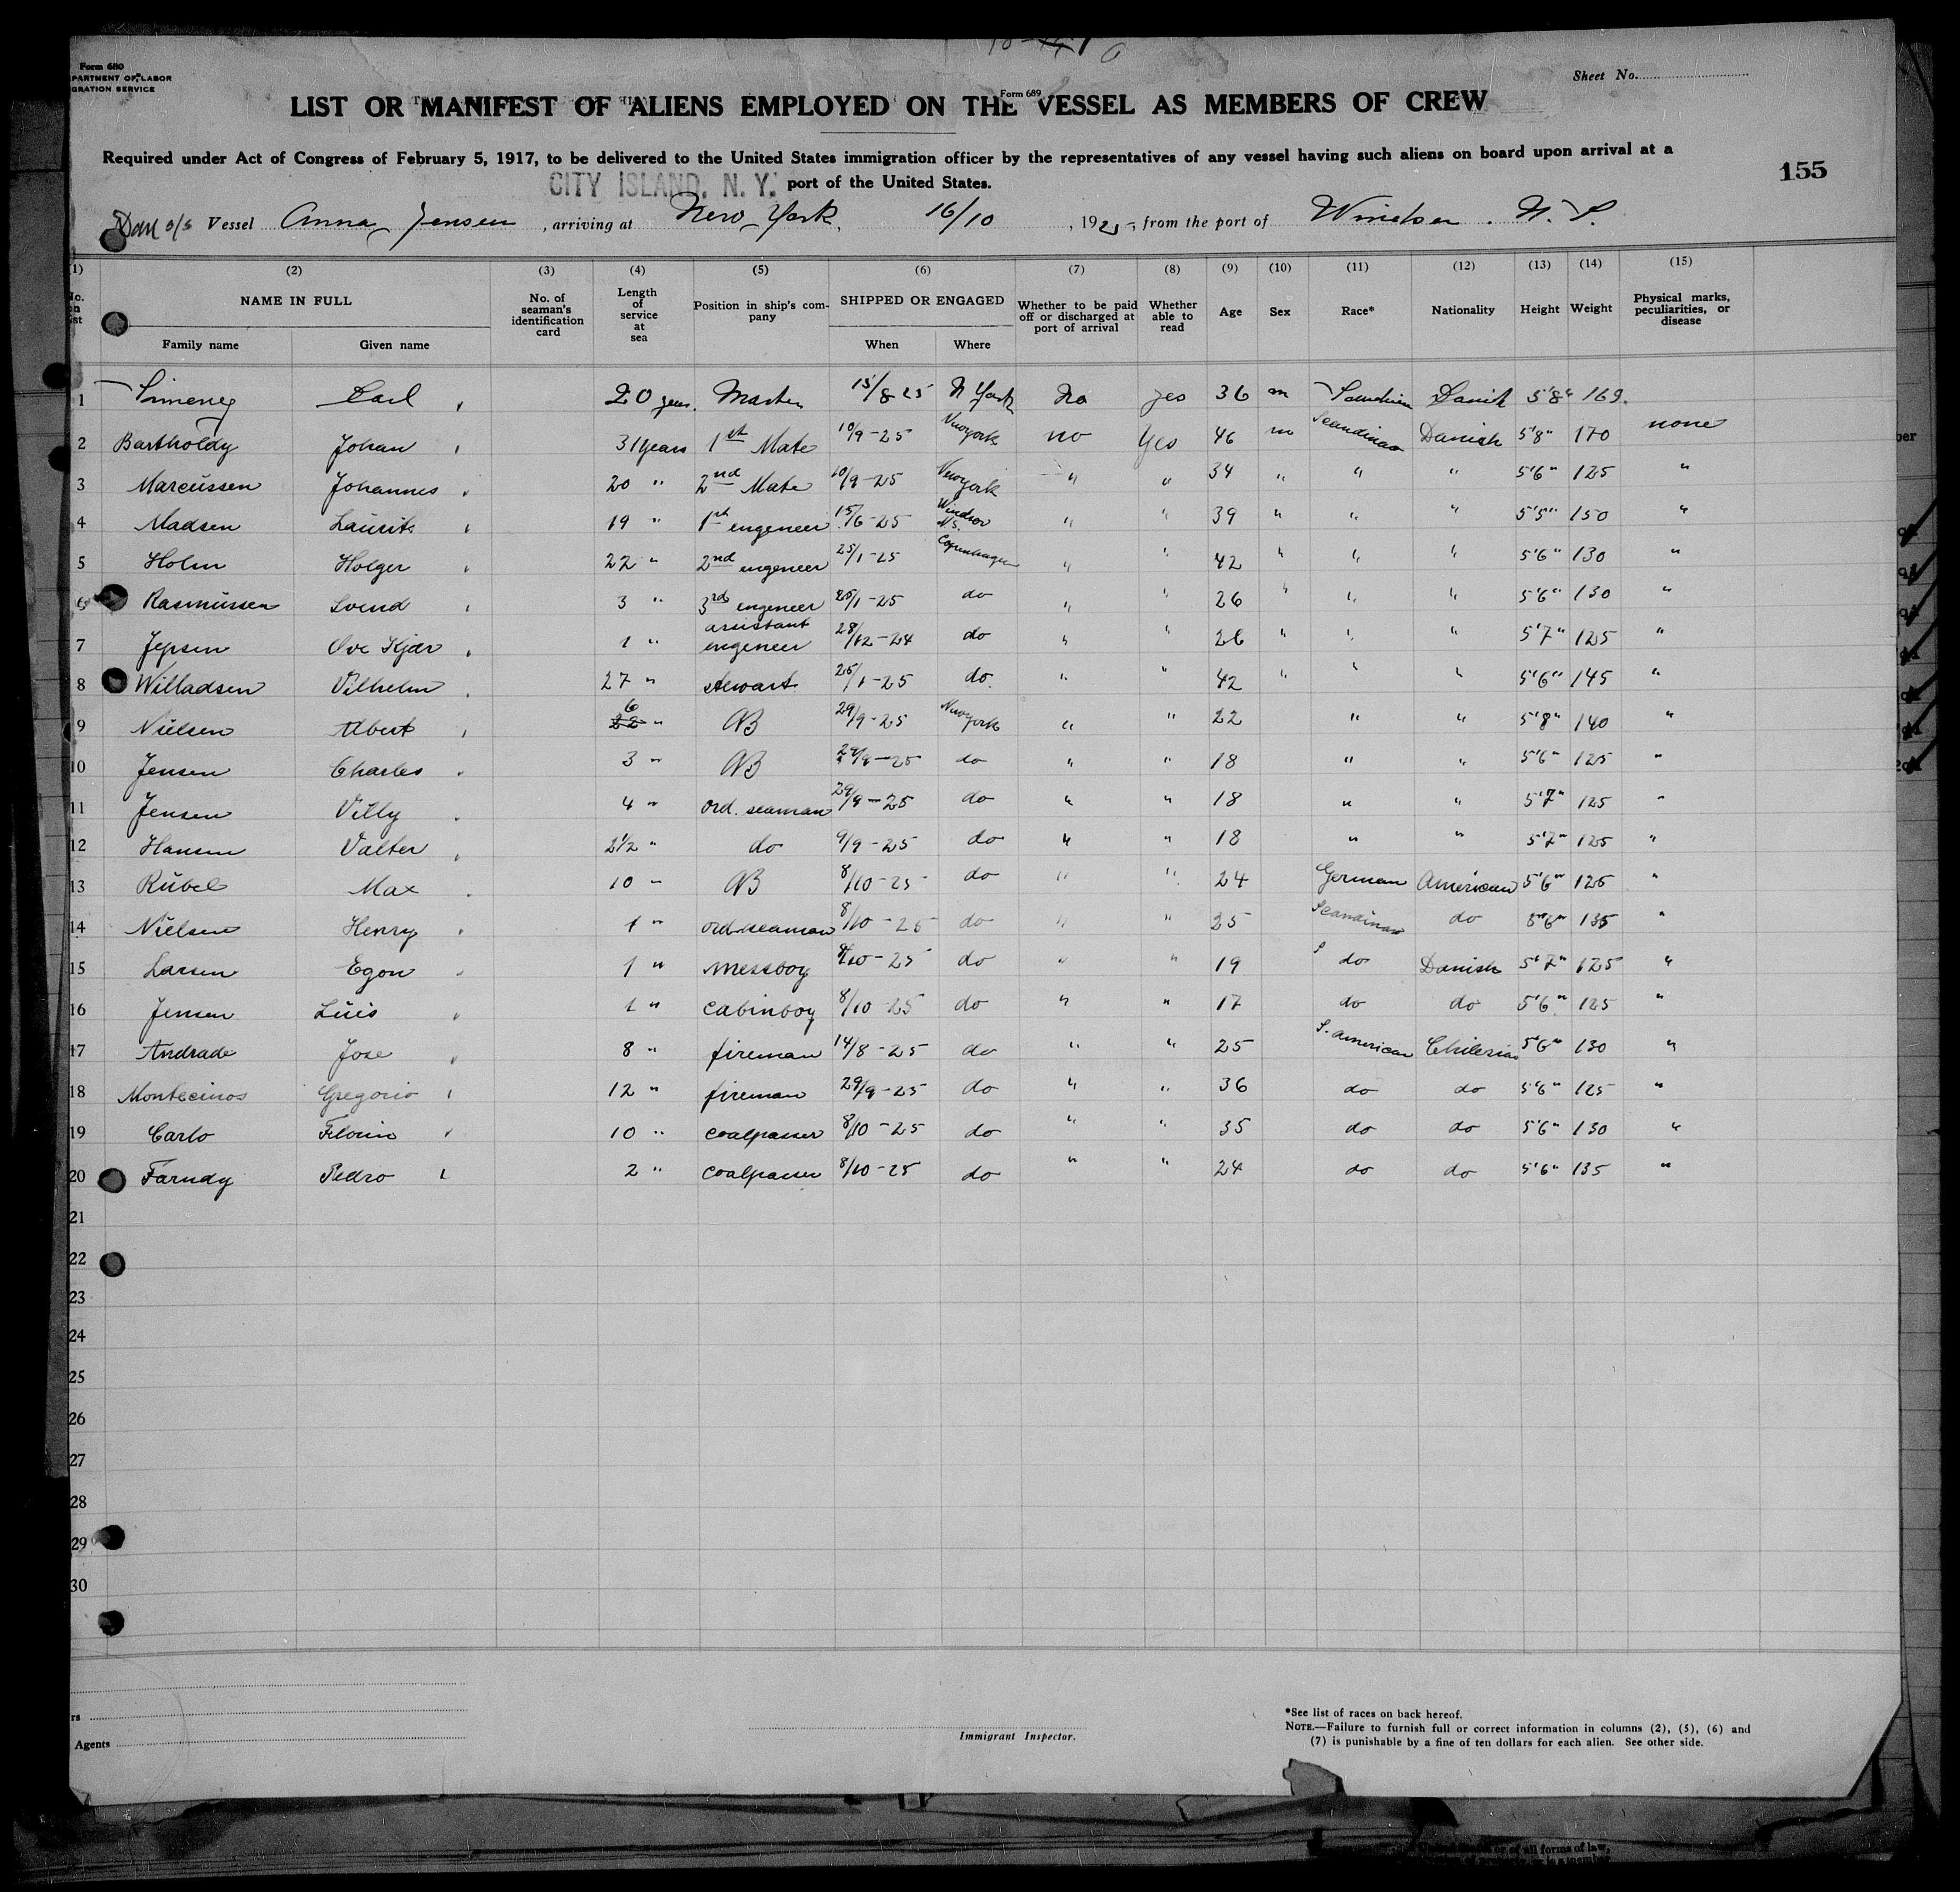 Form 680
PARTMENT OF LABOR
GRATION SERVICE
Sheet No.
Form 689
LIST OR MANIFEST OF ALIENS EMPLOYED ON THE VESSEL AS MEMBERS OF CREW
Required under Act of Congress of February 5, 1917, to be delivered to the United States immigration officer by the representatives of any vessel having such aliens on board upon arrival at a
CITY ISLAND, N. Y. port of the United States.
155
Dan s/s Vessel Anna Jensen, arriving at New York, 16/10, 1925, from the port of Windsor. N. S.
(1) (2) (3) (4) (5) (6) (7) (8) (9) (10) (11) (12) (13) (14) (15)
No. on list NAME IN FULL Family name Given name No. of seaman's identification card Length of service at sea Position in ship's company SHIPPED OR ENGAGED When Where Whether to be paid off or discharged at port of arrival Whether able to read Age Sex Race* Nationality Height Weight Physical marks, peculiarities, or disease
1 Carl 20 years. Master 15/8 25 N York No yes 36 m Danish 5'8" 169.
2 Bartholdy Johan 31 years 1st Mate 10/9-25 Newyork no Yes 46 m Scandinav Danish 5'8" 170 none
3 Marcussen Johannes 20 " 2nd Mate 10/9-25 Newyork " " 34 " " " 5'6" 125 "
4 Madsen Laurits 19 " 1st engeneer 15/6-25 Windsor N.S. " " 39 " " " 5'5" 150 "
5 Holm Holger 22 " 2nd engeneer 25/1-25 Copenhagen " " 42 " " " 5'6" 130 "
6 Rasmussen Svend 3 " 3rd engeneer 25/1-25 do " " 26 " " " 5'6" 130 "
7 Jepsen Ove Kjær 1 " assistant engeneer 28/12-24 do " " 26 " " " 5'7" 125 "
8 Willadsen Vilhelm 27 " stewart 25/1-25 do " " 42 " " " 5'6" 145 "
9 Nielsen Albert 6 22 " AB 29/9-25 Newyork " " 22 " " 5'8" 140 "
10 Jensen Charles 3 " AB 29/9-25 do " " 18 " " 5'6" 125 "
11 Jensen Villy 4 " ord. seaman 29/9-25 do " " 18 " " 5'7" 125 "
12 Hansen Valter 2½ " do 9/9-25 do " " 18 " " 5'7" 125 "
13 Rübel Max 10 " AB 8/10-25 do " " 24 German American 5'6" 125 "
14 Nielsen Henry 1 " ord. seaman 8/10-25 do " " 25 Scandinav do 5'6" 135 "
15 Larsen Egon 1 " messboy 8/10-25 do " " 19 do Danish 5'7" 125 "
16 Jensen Luis 1 " cabinboy 8/10-25 do " " 17 do do 5'6" 125 "
17 Andrade Jose 8 " fireman 14/8-25 do " " 25 S. american Chilenian 5'6" 130 "
18 Montecinos Gregorio 12 " fireman 29/9-25 do " " 36 do do 5'6" 125 "
19 Carlo 10 " coalpasser 8/10-25 do " " 35 do do 5'6" 130 "
20 Farndy Pedro 2 " coalpasser 8/10-25 do " " 24 do do 5'6" 135 "
21
22
23
24
25
26
27
28
29
30
rs
Agents
Immigrant Inspector.
*See list of races on back hereof.
NOTE.—Failure to furnish full or correct information in columns (2), (5), (6) and
(7) is punishable by a fine of ten dollars for each alien. See other side.
of all forms of law,